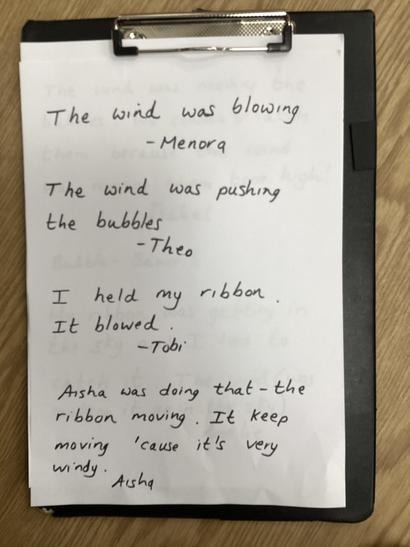 The wind was blowing
- Menora
The wind was pushing
the bubbles
- Theo
I held my ribbon.
It blowed.
- Tobi
Aisha was doing that - the
ribbon moving. It keep
moving 'cause it's very
windy.
Aisha